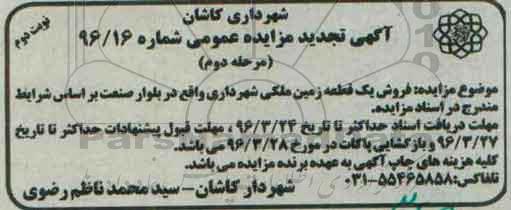 شهرداری کاشان
نوبت دوم
آگهی تجدید مزایده عمومی شماره ۹۶/۱۶
(مرحله دوم)
موضوع مزایده: فروش یک قطعه زمین ملکی شهرداری واقع در بلوار صنعت بر اساس شرایط
مندرج در اسناد مزایده.
مهلت دریافت اسناد حداکثر تا تاریخ ۹۶/۳/۲۴ ، مهلت قبول پیشنهادات حداکثر تا تاریخ
۹۶/۳/۲۷ و بازگشایی پاکات در مورخ ۹۶/۳/۲۸ می باشد.
کلیه هزینه های چاپ آگهی به عهده برنده مزایده می باشد.
تلفاکس: ۵۵۴۶۵۸۵۸-۰۳۱
شهردار کاشان – سید محمد ناظم رضوی